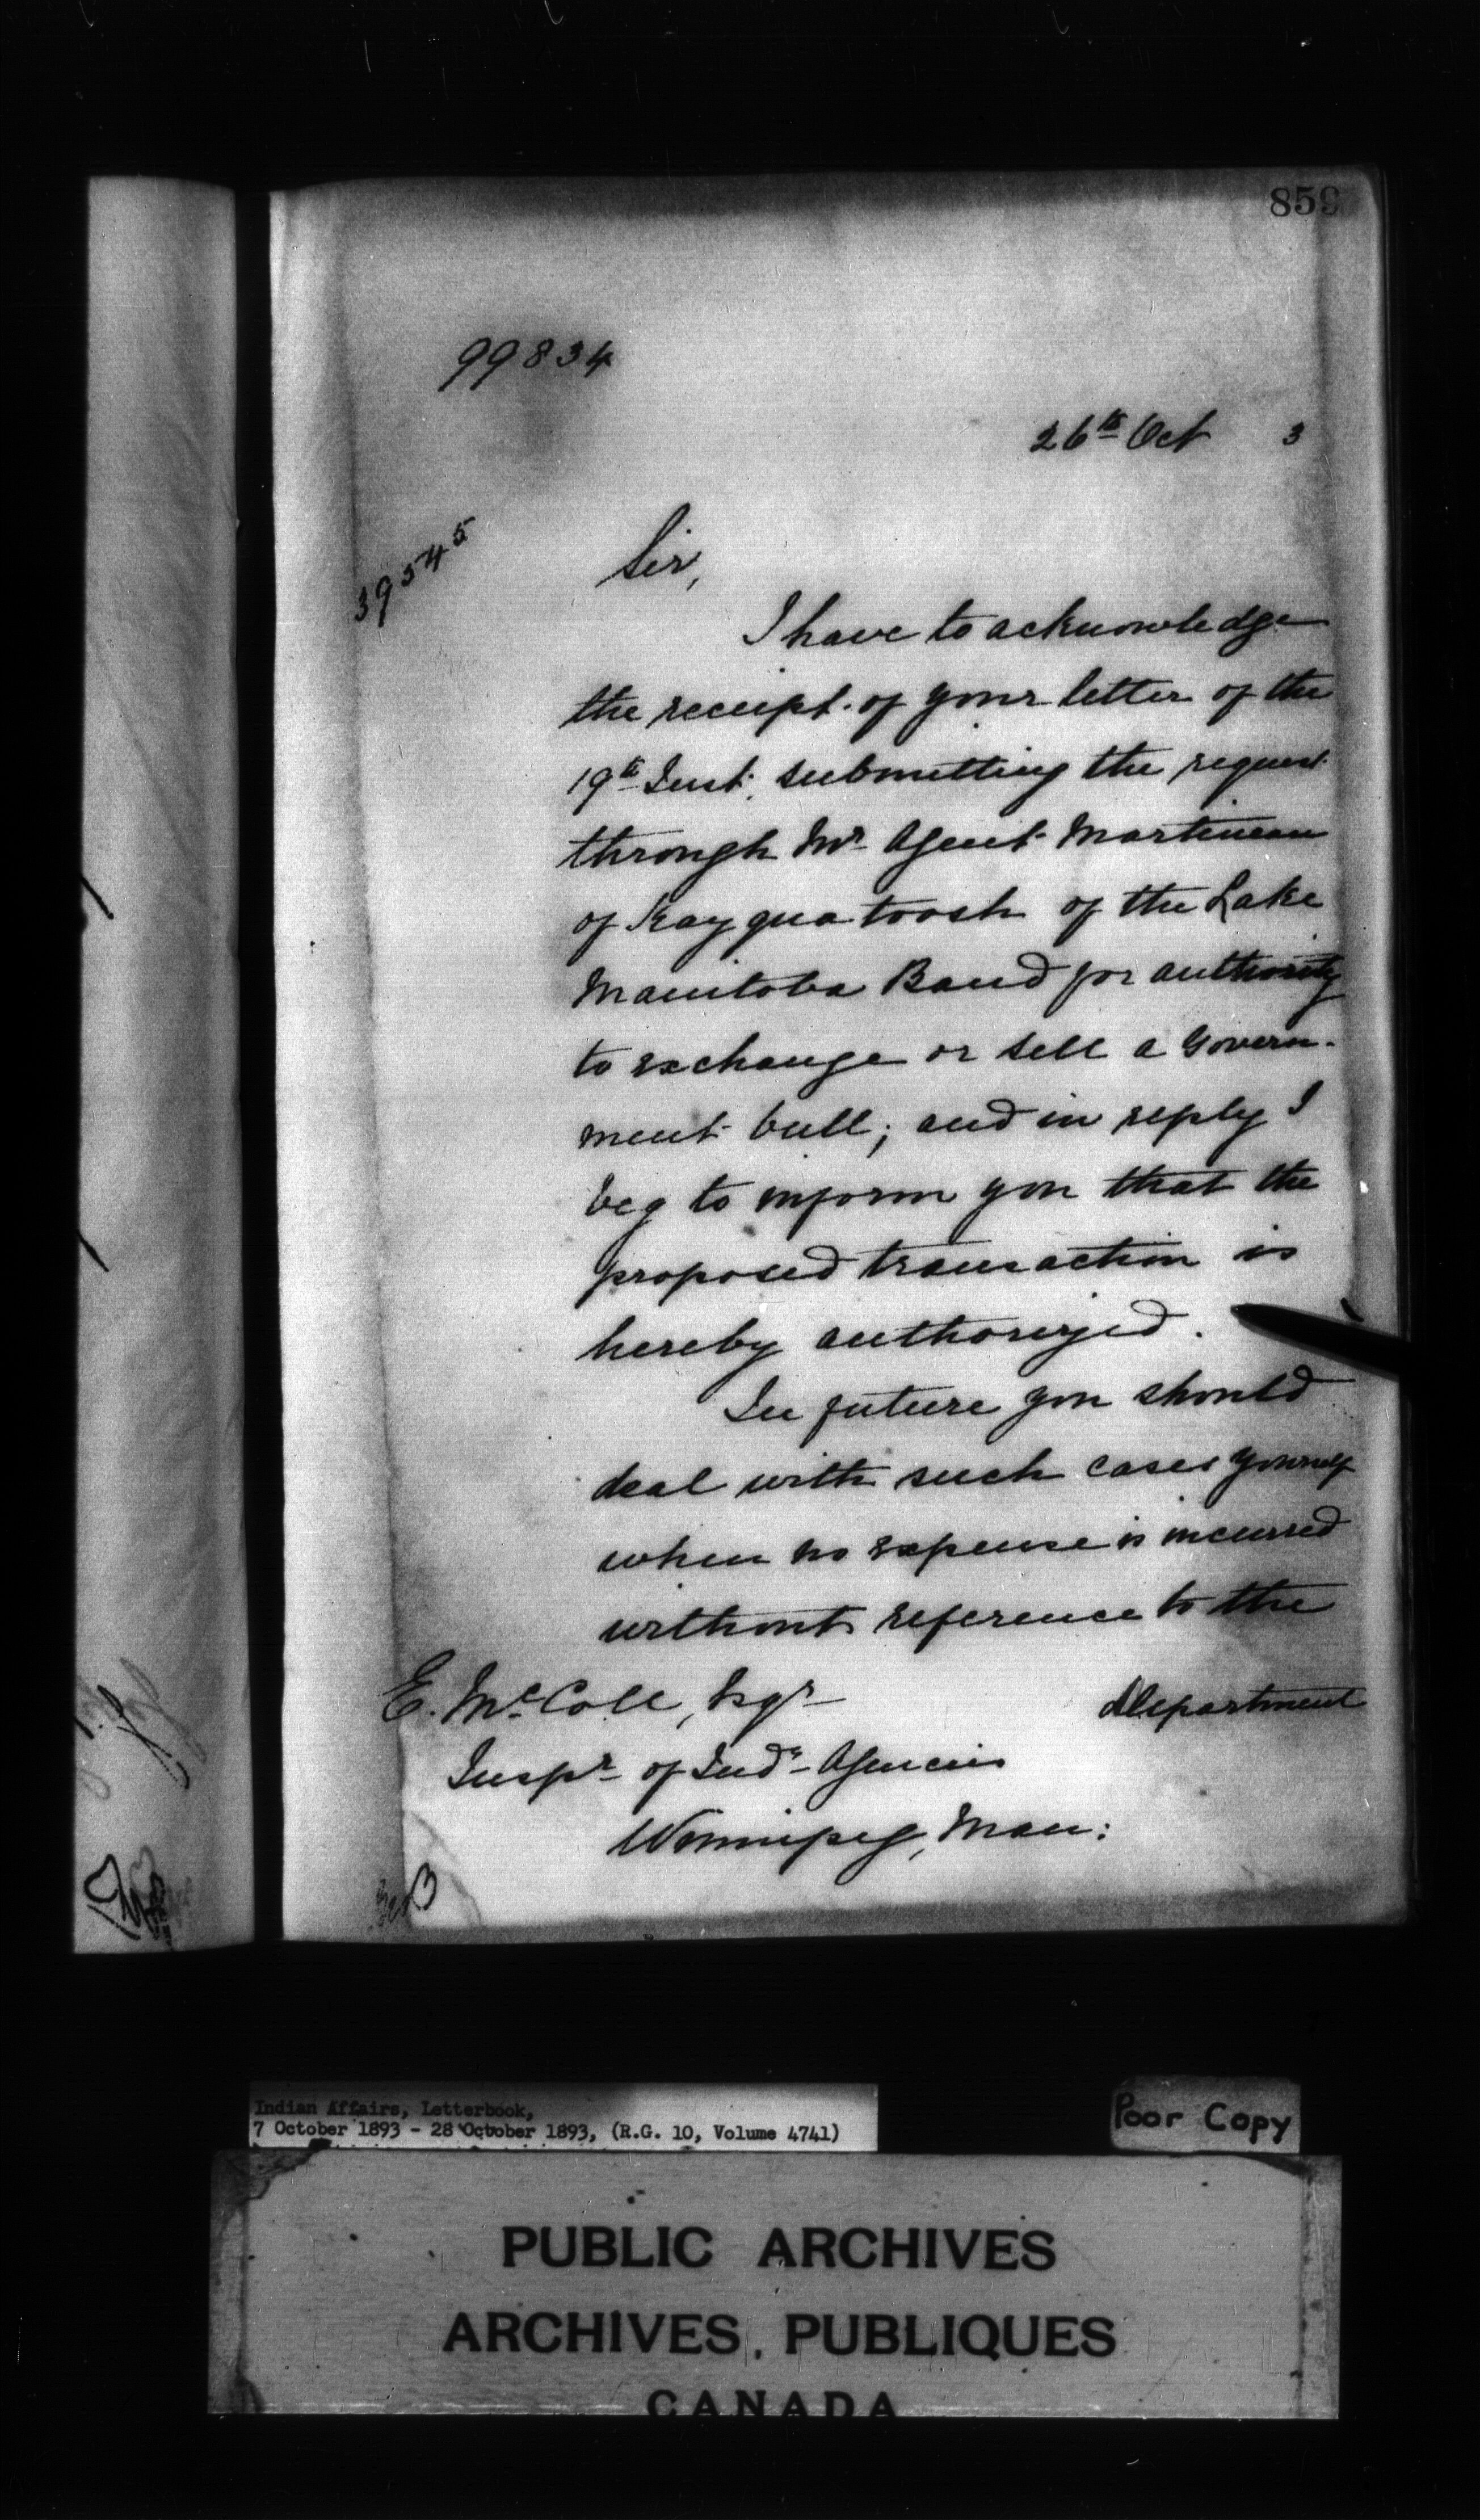 859
99834
26th Oct 3
39545
Sir,
I have to acknowledge
the receipt of your letter of the
19th Inst. submitting the request
through Mr Agent Martineau
of Kayquatoosh of the Lake
Manitoba Band for authority
to exchange or sell a Govern-
ment bull; and in reply I
beg to inform you that the
proposed transaction is
hereby authorized.
In future you should
deal with such cases yourself
when no expense is incurred
without reference to the
Department
E. McColl, Esqr
Inspr of Indn Agencies
Winnipeg, Man:
Indian Affairs, Letterbook,
7 October 1893 - 28 October 1893, (R.G. 10, Volume 4741)
Poor Copy
PUBLIC ARCHIVES
ARCHIVES PUBLIQUES
CANADA